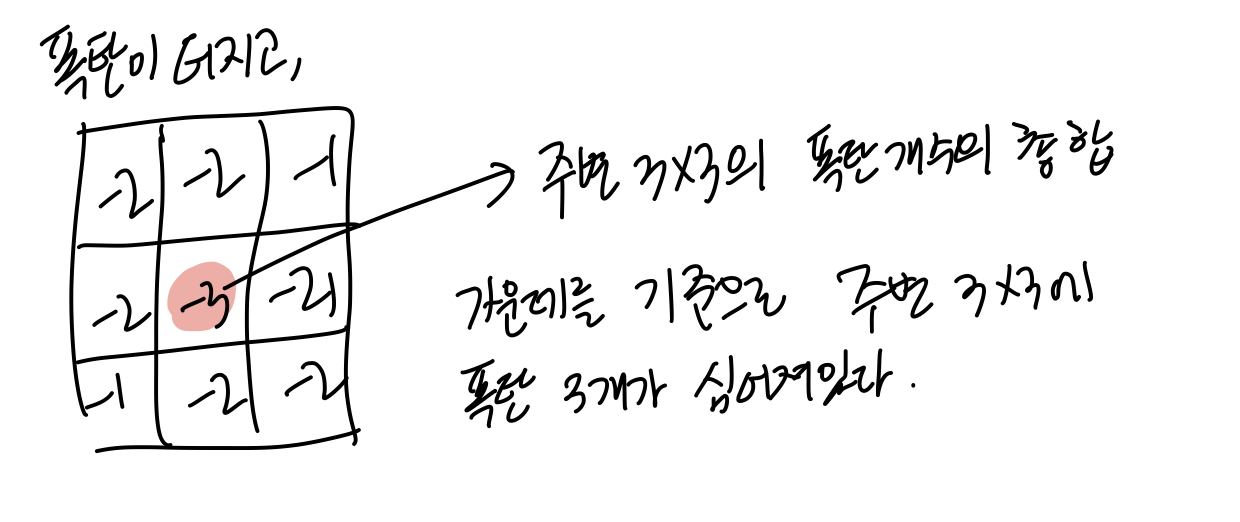 폭탄이 터지고,
-2 -2 -1
-2 -3 -2
-1 -2 -2
주변 3×3의 폭탄개수의 총합
가운데를 기준으로 주변 3×3에
폭탄 3개가 심어져있다.